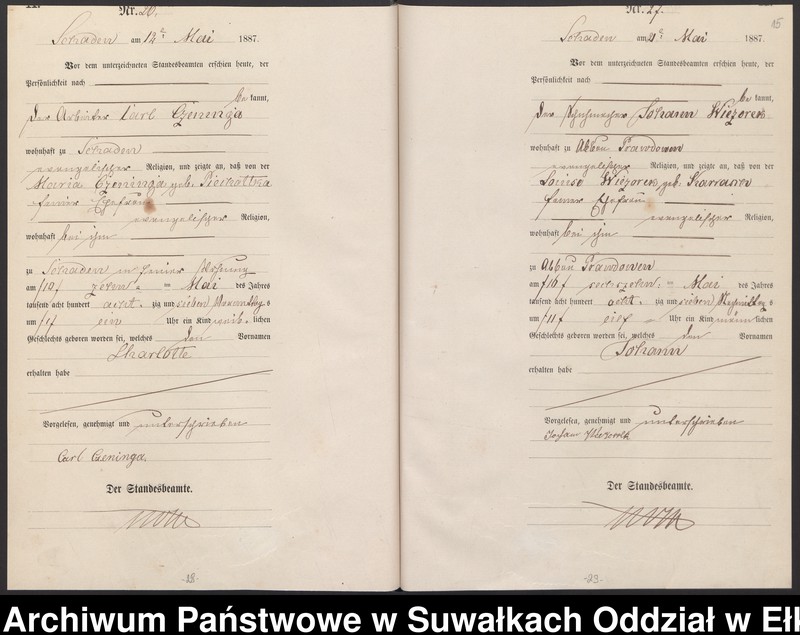 Nr. 26.
Schaden am 12. Mai 1887.
Vor dem unterzeichneten Standesbeamten erschien heute, der
Persönlichkeit nach
be kannt,
der Arbeiter Carl Czeninga
wohnhaft zu Schaden
evangelischer Religion, und zeigte an, daß von der
Maria Czeninga geb.
seiner Ehefrau
evangelischer Religion,
wohnhaft bei ihm
zu Schaden in seiner Wohnung
am /10/ zehn ten Mai des Jahres
tausend acht hundert acht zig und sieben Vormittag s
um /1/ ein Uhr ein Kind weib lichen
Geschlechts geboren worden sei, welches den Vornamen
Charlotte
erhalten habe
Vorgelesen, genehmigt und unterschrieben
Carl Czeninga
Der Standesbeamte.
-28-
Nr. 27.
15
Schaden am Mai 1887.
Vor dem unterzeichneten Standesbeamten erschien heute, der
Persönlichkeit nach
be kannt,
der Schuhmacher Johann Wiezorek
wohnhaft zu Abbau Prawdowen
evangelischer Religion, und zeigte an, daß von der
Louise Wiezorek geb.
seiner Ehefrau
evangelischer Religion,
wohnhaft bei ihm
zu Abbau Prawdowen
am /16/ sechszehn ten Mai des Jahres
tausend acht hundert acht zig und sieben Nachmittag s
um /11/ elf Uhr ein Kind männ lichen
Geschlechts geboren worden sei, welches den Vornamen
Johann
erhalten habe
Vorgelesen, genehmigt und unterschrieben
Der Standesbeamte.
-29-
Archiwum Państwowe w Suwałkach Oddział w Eł